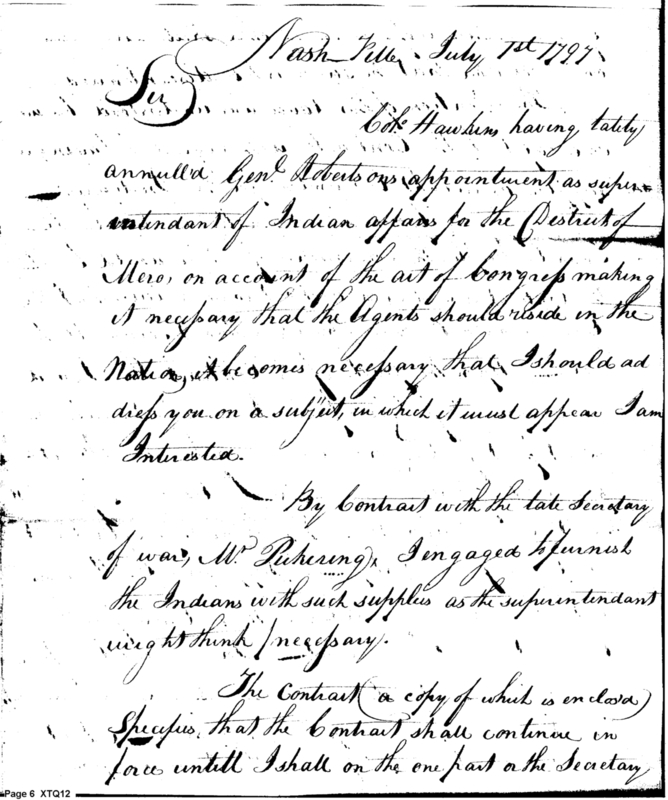 Nash-Ville July 1st 1797
Sir
Colo Hawkins having lately
annull'd Genl Robertsons appointment as super
intendant of Indian affairs for the District of
Mero, on account of the act of Congress making
it necessary that the Agents should reside in the
Nation, it becomes necessary that I should ad
dress you on a subject, in which it must appear I am
Interested.
By Contract with the late Secretary
of war, Mr Pickering, I engaged to furnish
the Indians with such supplies as the superintendant
might think necessary.
The Contract (a copy of which is enclos'd)
Specifies, that the Contract shall continue in
force untill I shall on the one part or the Secretary
Page 6 XTQ12